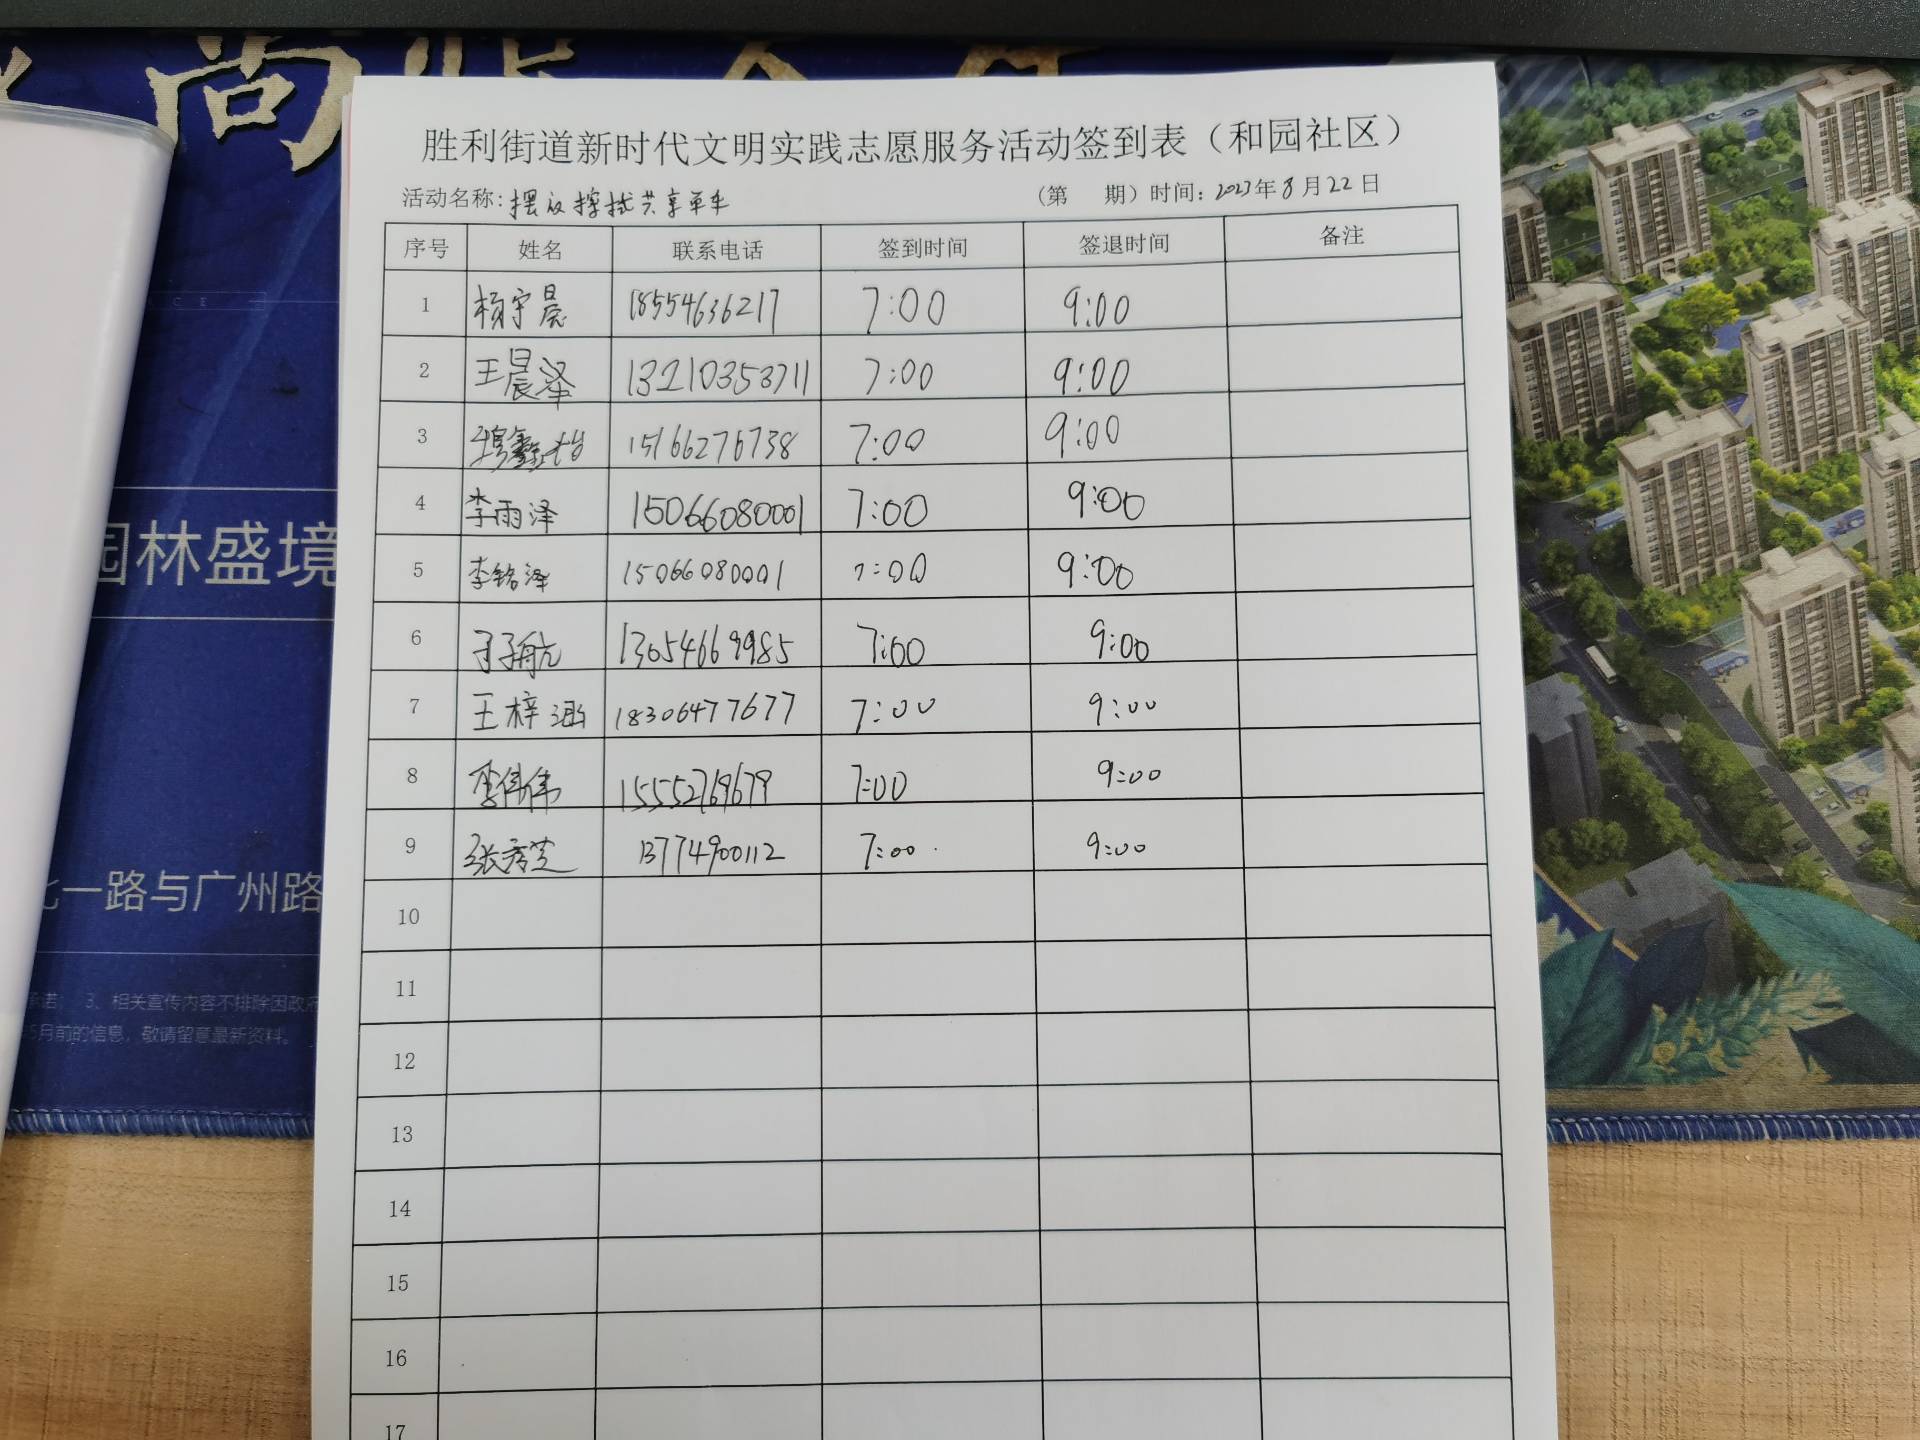 尚
胜利街道新时代文明实践志愿服务活动签到表（和园社区）
活动名称：摆放擦拭共享单车 （第 期）时间：2023年8月22日
序号 姓名 联系电话 签到时间 签退时间 备注
1 杨宇晨 18554636217 7:00 9:00
2 王晨泽 13210353711 7:00 9:00
3 15166276738 7:00 9:00
4 李雨泽 15066080001 7:00 9:00
5 李铭泽 15066080001 7:00 9:00
6 子航 13654669985 7:00 9:00
7 王梓涵 18306477677 7:00 9:00
8 李伟伟 15552769679 7:00 9:00
9 张秀芝 13774900112 7:00 9:00
10
11
12
13
14
15
16
17
园林盛境
北一路与广州路
承诺； 3、相关宣传内容不排除因政府
5月前的信息，敬请留意最新资料。